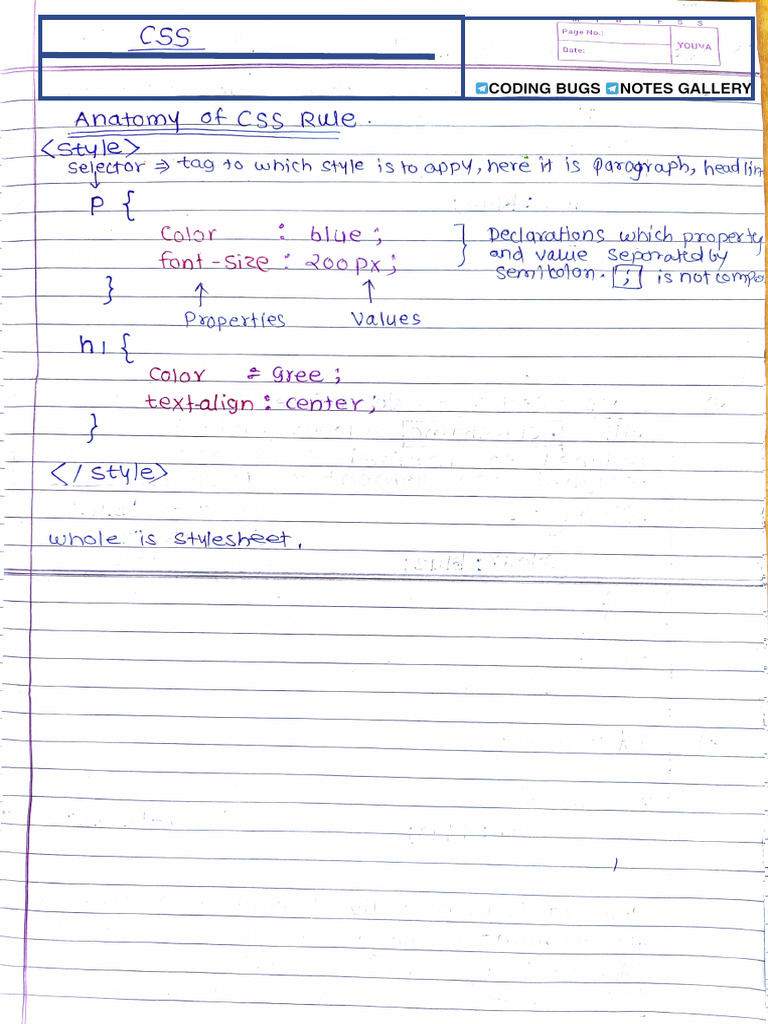 CSS
Page No.:
Date:
YOUVA
CODING BUGS NOTES GALLERY
Anatomy of CSS Rule.
<style>
selector ⇒ tag to which style is to appy, here it is paragraph, headlin
P {
Color : blue ;
font-size : 200px ;
} Declarations which property
and value seporated by
semikolon. [;] is not compo
}
Properties Values
h1 {
Color : Gree ;
text-align : center ;
}
</style>
whole is stylesheet.